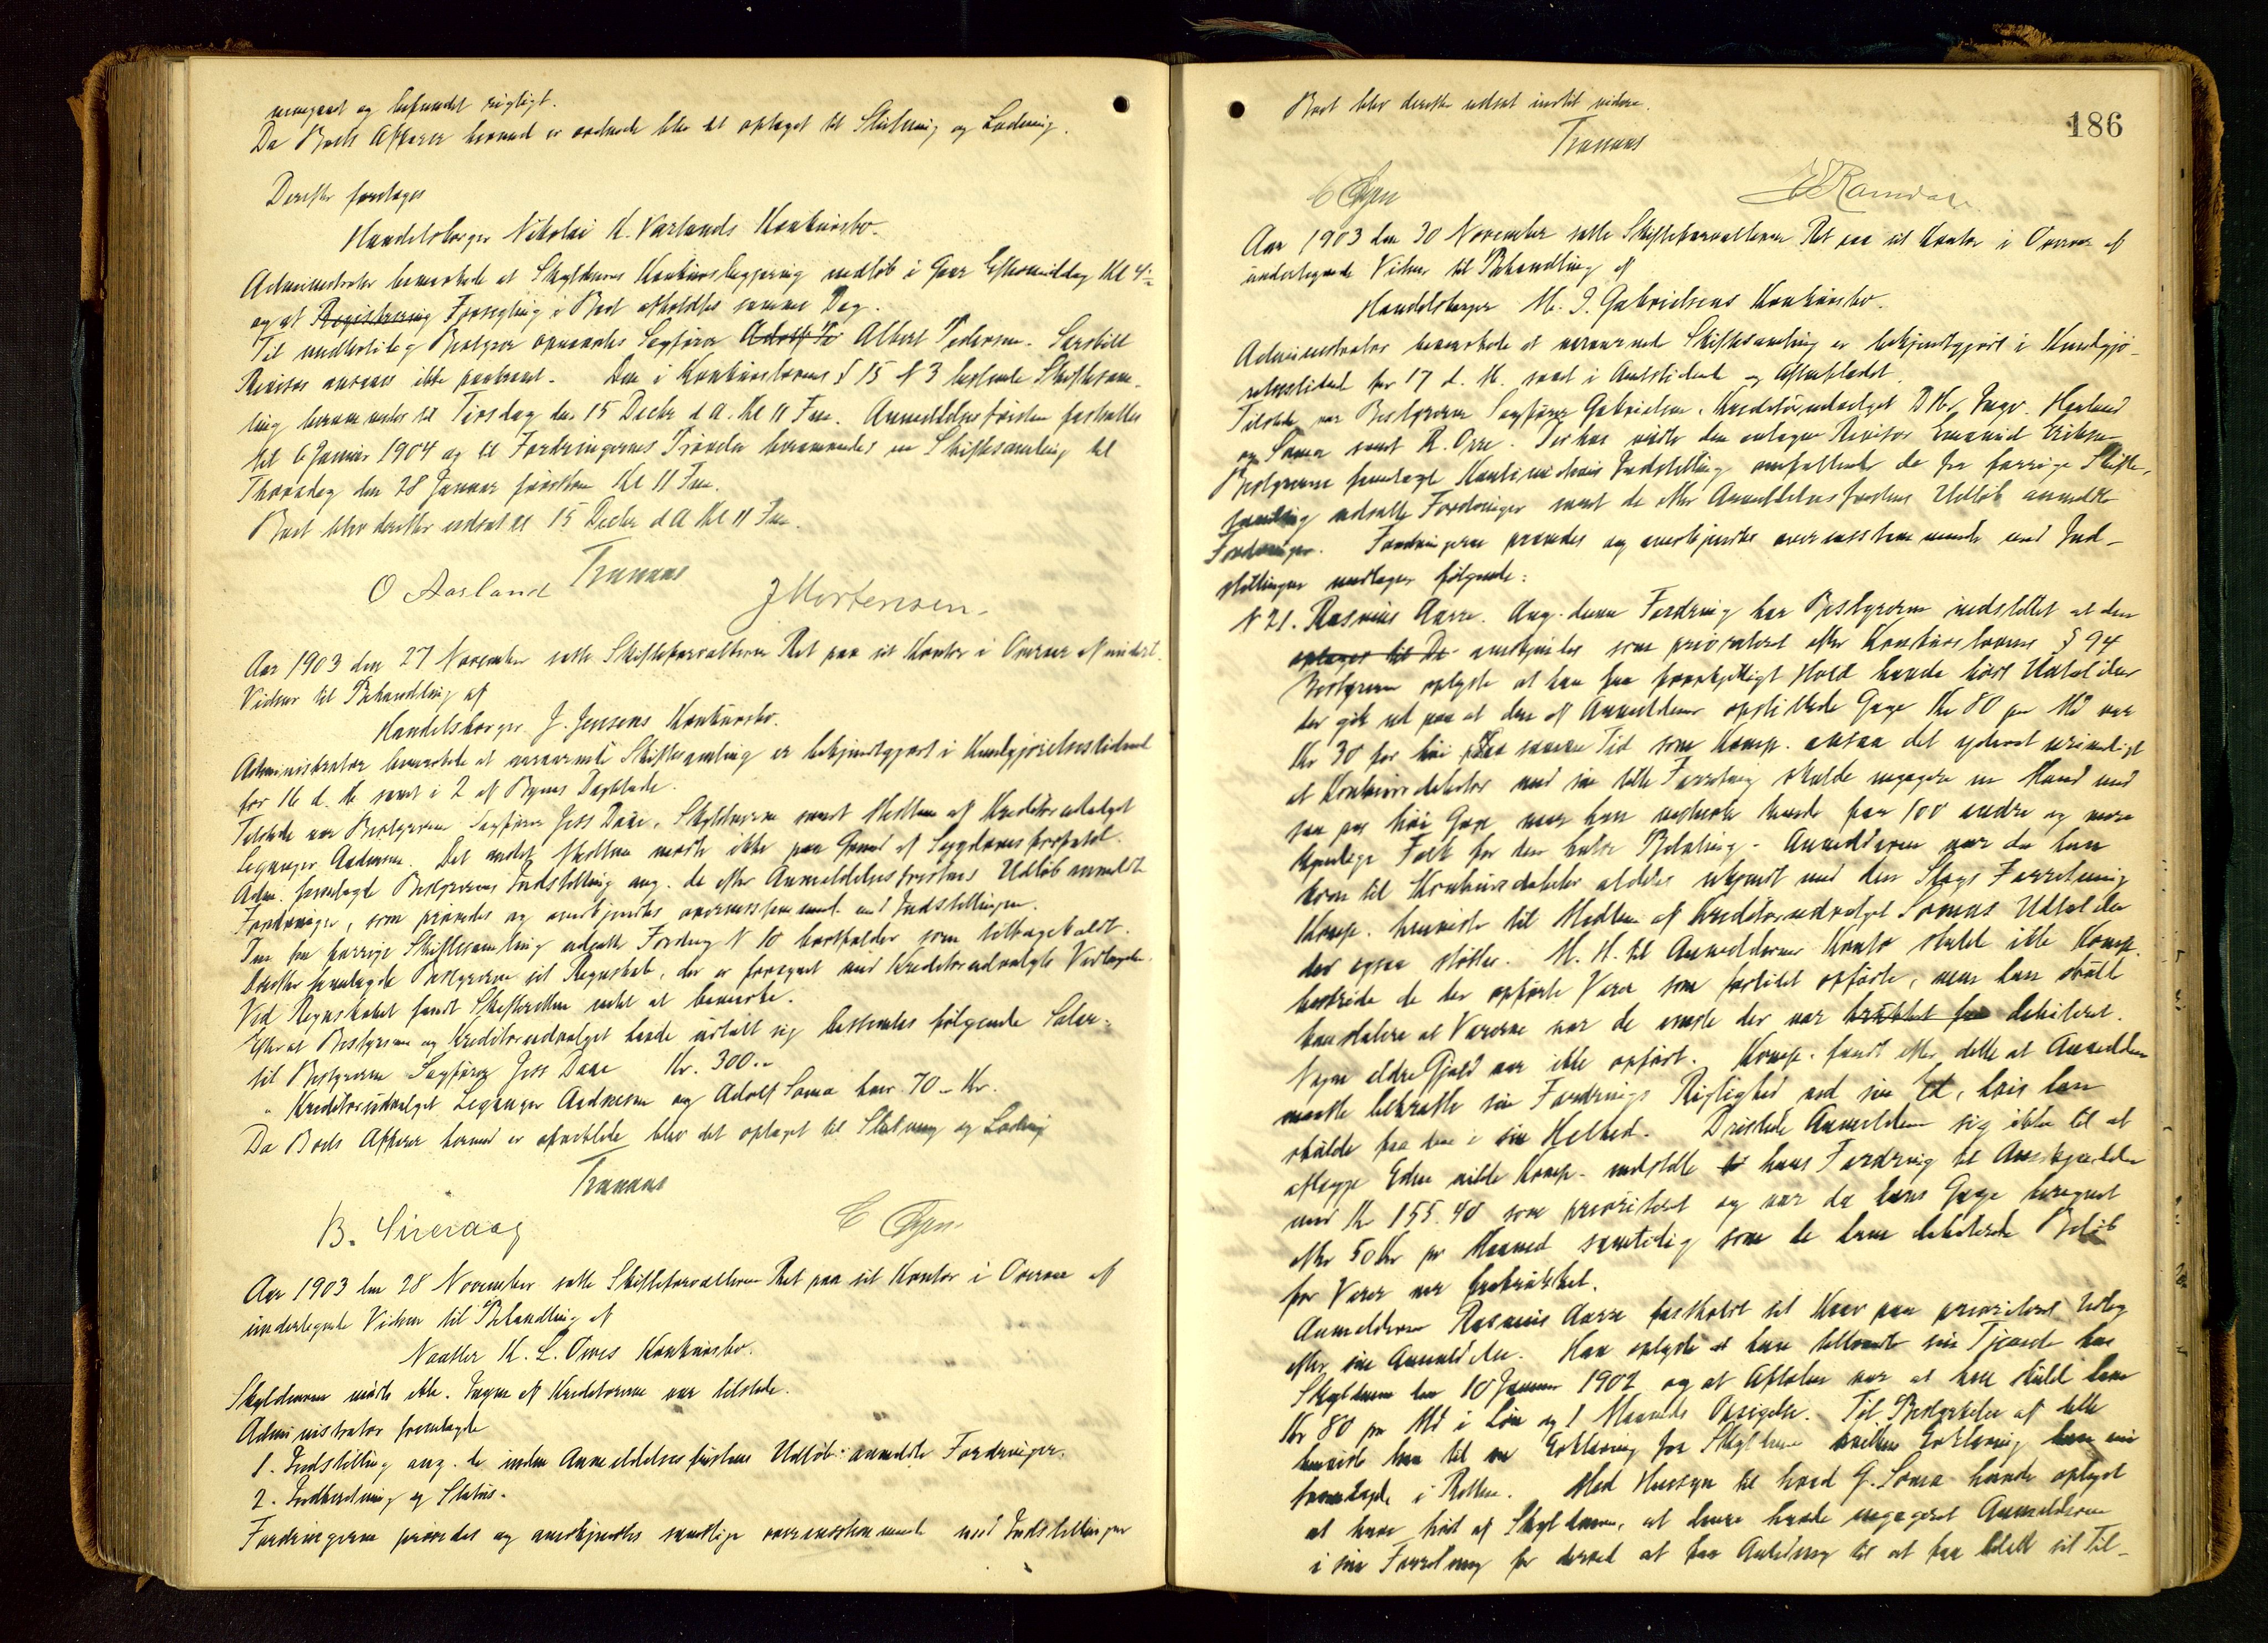 gjennemgaaet og befundet rigtigt.
Da Boets Affærer hermed er ordnede blev det optaget til Slutning og Lodning.
Derefter foretoges
Handelsborger Nikolai K. Varlands Konkursbo.
Administrator bemærkede at Skyldnerens Konkursbegjæring indløb i Gaar Eftermiddag Kl 4
og at Registrering Forsegling i Boet afholdtes samme Dag.
Til midlertidig Bestyrer opnævntes Sagfører Adolf Pe Albert Pedersen. Særskilt
Revisor ansaaes ikke paakrævet. Den i Konkurslovens § 15 N 3 bestemte Skiftesam-
ling berammedes til Tirsdag den 15 Decbr d.A. Kl 11 Fm. Anmeldelsesfristen fastsattes
til 6 Januar 1904 og til Fordringernes Prøvelse berammedes en Skiftesamling til
Thorsdag den 28 Januar førstkom Kl 11 Fm.
Boet blev derefter udsat til 15 Decbr d A Kl 11 Fm.
Tranaas
O Aasland J Mortensen
Aar 1903 den 27 November satte Skifteforvalteren Ret paa sit Kontor i Overvær af undert.
Vidner til Behandling af
Handelsborger J. Jensens Konkursbo.
Administrator bemærkede at nærværende Skiftesamling er bekjendtgjort i Kundgjørelsestidende
for 16 d. M. samt i 2 af Byens Dagblade.
Tilstede var Bestyreren Sagfører Jess Daae, Skyldneren samt Medlem af Kreditorudvalget
Leganger Andersen. Det andet Medlem mødte ikke paa Grund af Sygdomsforfald.
Adm. fremlagde Bestyrerens Indstilling ang. de efter Anmeldelsesfristens Udløb anmeldte
Fordringer, som prøvedes og anerkjendtes overensstemmende med Indstillingen.
Den fra forrige Skiftesamling udsatte Fordring N 10 bortfalder som tilbagekaldt.
Derefter fremlagde Bestyreren sit Regnskab, der er forsynet med Kreditorudvalgets Vedtagelse.
Ved Regnskabet fandt Skifteretten intet at bemærke.
Efter at Bestyreren og Kreditorudvalget havde udtalt sig bestemtes følgende Salær:
til Bestyreren Sagfører Jess Daae Kr. 300.-
" Kreditorudvalget Leganger Andresen og Adolf Soma hver 70 - Kr.
Da Boets Affærer hermed er afviklede blev det optaget til Slutning og Lodning
Tranaas
B. Sireraag C
Aar 1903 den 28 November satte Skifteforvalteren Ret paa sit Kontor i Overvær af
undertegnede Vidner til Behandling af
K. L. Konkursbo.
Skyldneren mødte ikke. Ingen af Kreditorerne var tilstede.
Administrator fremlagde
1. Indstilling ang. de inden Anmeldelsesfristens Udløb anmeldte Fordringer.
2. Indberetning og Status.
Fordringerne prøvedes og anerkjendtes samtlige overensstemmende med Indstillingen
186
Boet blev derefter udsat indtil videre.
Tranaas
C
Aar 1903 den 30 November satte Skifteforvalteren Ret paa sit Kontor i Overvær af
undertegnede Vidner til Behandling af
Handelsborger M. J. Gabrielsens Konkursbo.
Administrator bemærkede at nærværende Skiftesamling er bekjendtgjort i Kundgjø-
relsestidende for 17 d. M. samt i Amtstidende og Aftenbladet.
Tilstede var Bestyreren Sagfører Gabrielsen, Kreditorudvalget D Hrr Haaland
og Soma samt R. Orre. Videre mødte den antagne Revisor Emanuel Eriksen
Bestyreren fremlagde Indstilling omfattende de fra forrige Skifte-
samling udsatte Fordringer samt de efter Anmeldelsesfristens Udløb anmeldte
Fordringer. Fordringerne prøvedes og anerkjendtes overensstemmende med Ind-
stillingen undtagen følgende:
N 21. Rasmus Aarre. Ang. denne Fordring har Bestyreren indstillet at den
optages til De anerkjendes som prioriteret efter Konkurslovens § 94
Bestyreren oplyste at han fra forskjelligt Hold havde hørt Udtalelser
der gik ud paa at den af Anmelderen opstillede Gage Kr 80 pr Md var
Kr 30 for høi samme Tid som Komp. ansaa det yderst urimeligt
at Konkursdebitor med sin lille Forretning skulde engagere en Mand med
saa pas høi Gage naar han nedenfor kunde faa 100 andre og mere
Folk for den halve Betaling. Anmelderen var da han
kom til Konkursdebitor aldeles ukjendt med den Slags Forretning
Komp. henviste til Medlem af Kreditorudvalget Somas Udtalelser
der ogsaa støtter. M. H. til Anmelderens Konto skulde ikke Komp.
bestride de der opførte Varer som fortidet opførte, men han skulde
konstatere at Varerne var de eneste der var trukket fra debiteret.
Nogen ældre Gjæld var ikke opført. Komp. fandt efter dette at Anmelderen
maatte bekræfte sin Fordrings Rigtighed ved sin Ed, hvis han
skulde faa den i sin Helhed. Dristede Anmelderen sig ikke til at
aflægge Eden vilde Komp. indstille til hans Fordring til Anerkjendelse
med Kr 155.40 som prioriteret og var da hans Gage beregnet
efter 50 Kr pr Maaned samtidig som de ham debiterede Beløb
for Varer var fratrukket.
Anmelderen Rasmus Aarre fastholdt sit Krav paa prioriteret Udlæg
efter sin Anmeldelse. Han oplyste at han tiltraadte sin Tjeneste hos
Skyldneren den 10 Januar 1902 og at Aftalen var at han skulde have
Kr 80 pr Md i Løn og 1 Maaneds Opsigelse. Til Bestyrkelse af dette
henviste han til en Erklæring fra Skyldneren hvilken Erklæring han nu
fremlagde i Retten. Med Hensyn til hvad G. Soma havde oplyst
at have hørt af Skyldneren, at denne havde engageret Anmelderen
i sin Forretning for derved at faa Anledning til at faa betalt sit Til-